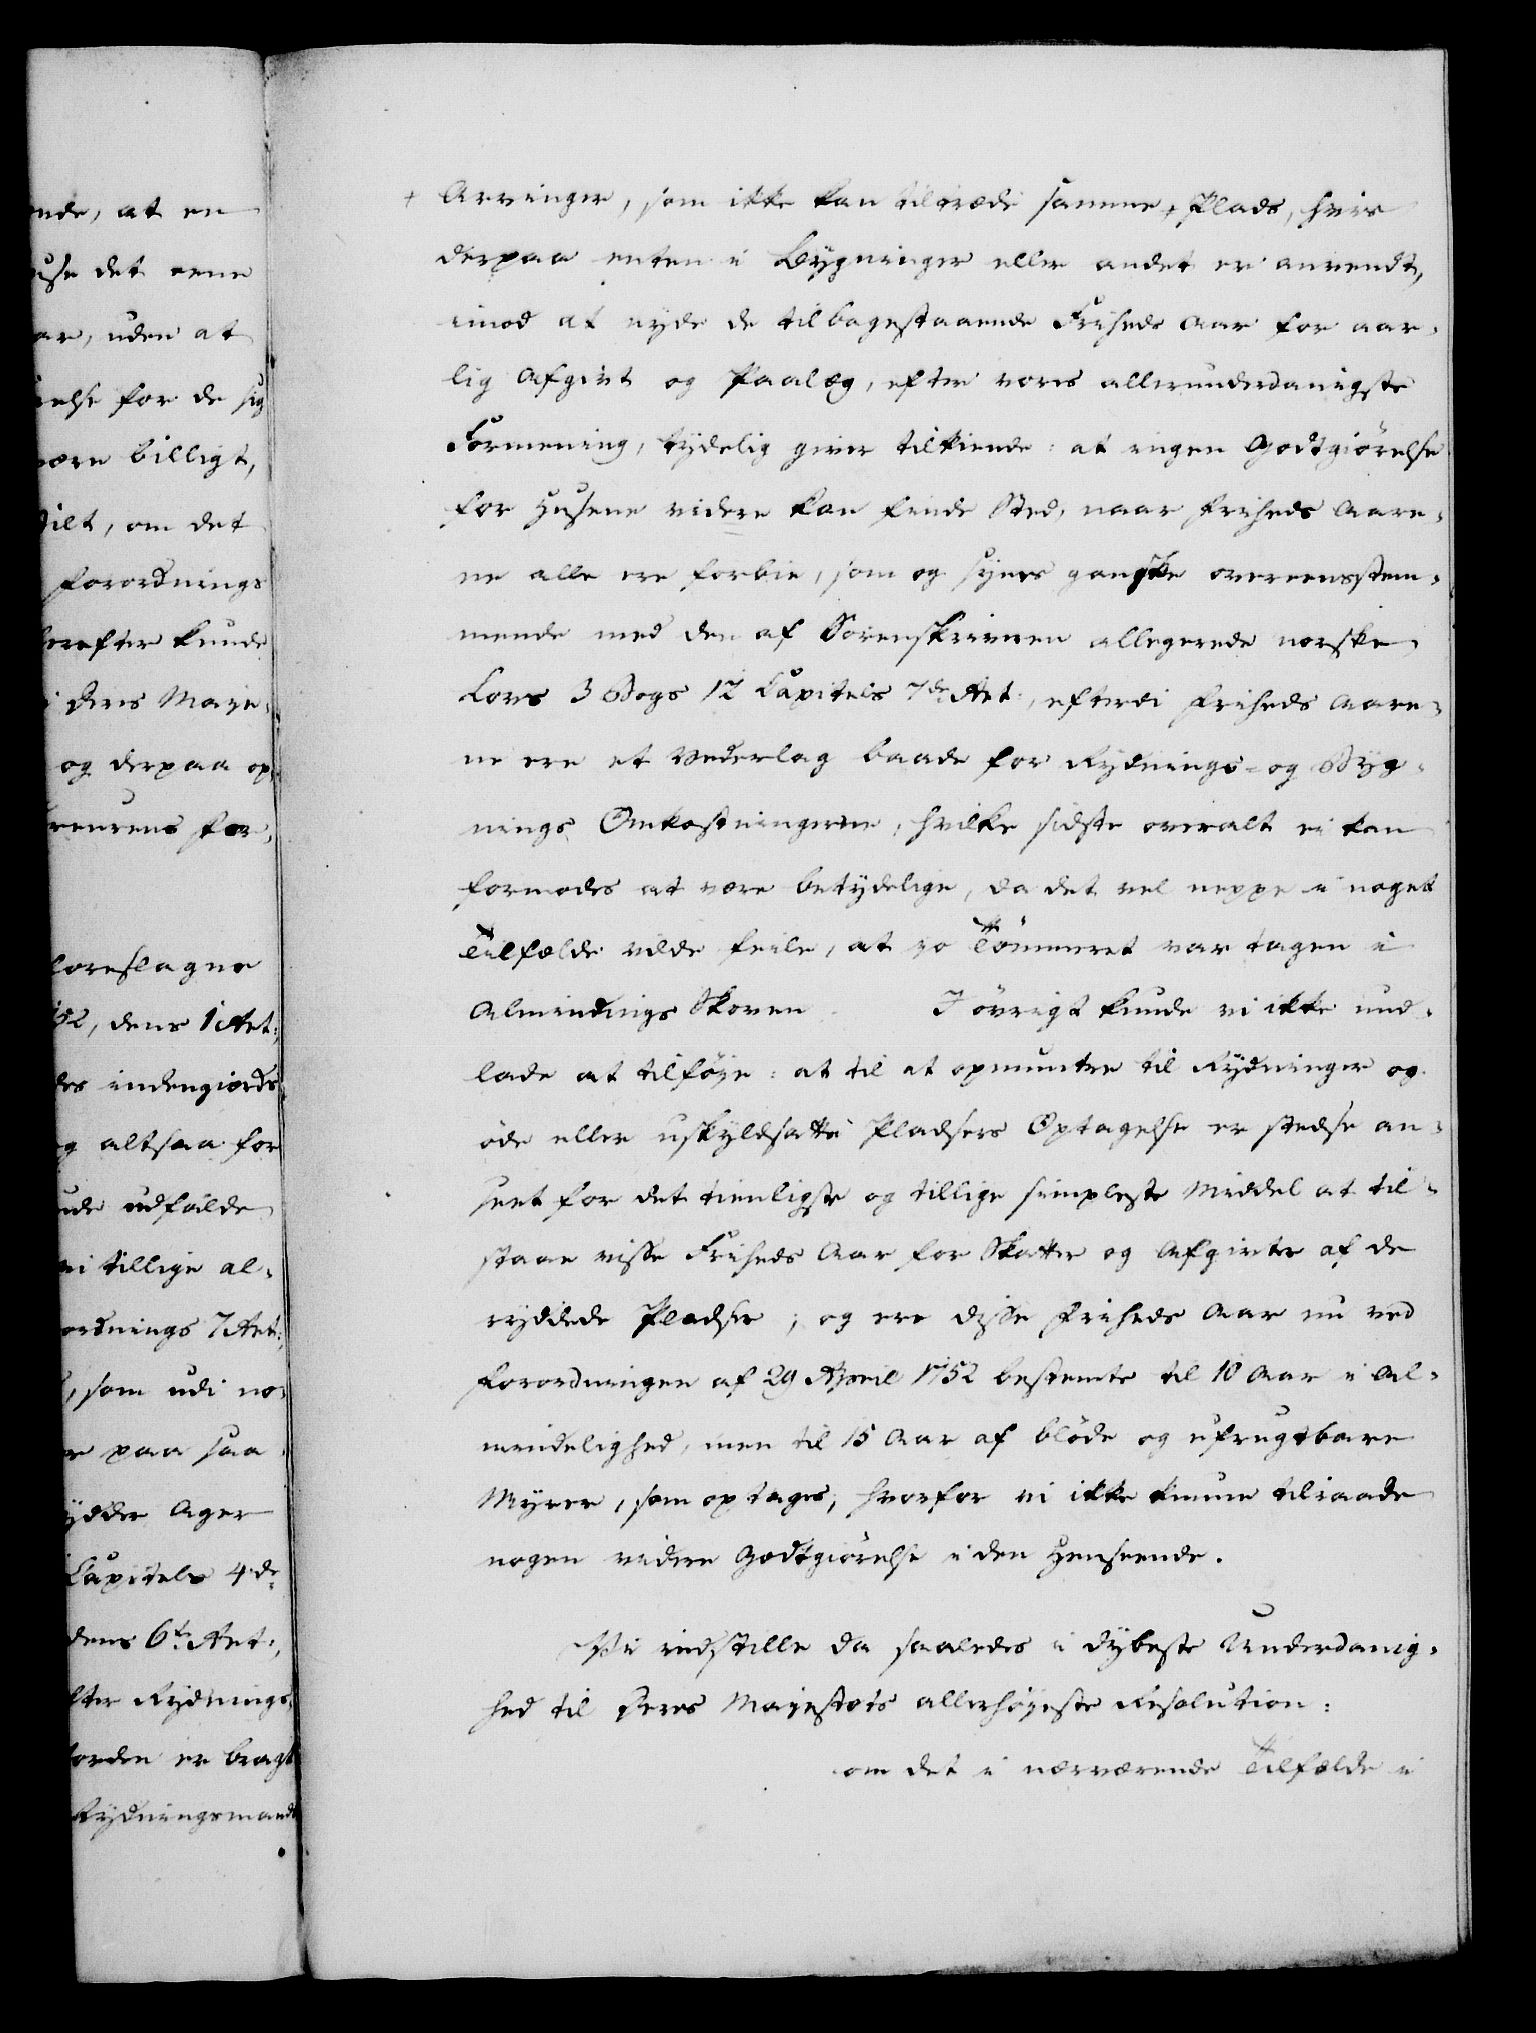 ende, at en
huse det eene
ar, uden at
relse for de sig
være billigt,
tilt, om det
forordnings
herefter kunde
i Deres Maje-
og derpaa op-
foreslagne
152, dens 1 Art:,
des indengiærds
og altsaa for
ude udfalde
vi tillige al-
ordnings 7 Art:,
som udi no-
er paa saa
rydder Ager
Capitels 4de
dens 6te Art:,
efter Rydnings-
Jorden er bragt
Rydningsmands
+ Arvinger, som ikke kan tiltræde samme + Plads, hvis
derpaa enten i Bygninger eller andet er anvendt,
imod at nyde de tilbagestaaende Friheds Aar for aar-
lig Afgivt og Paalæg, efter vores allerunderdanigste
Formening, tydelig giver tilkiende: at ingen Godtgiörelse
for Husene videre kan finde Sted, naar Friheds Aare-
ne alle ere forbie, som og synes ganske overeensstem-
mende med den af Sorenskriveren allegerede norske
Lovs 3 Bogs 12 Capitels 7de Art:, efterdi Friheds Aare-
ne ere et Vederlag baade for Rydnings- og Byg-
nings Omkostningerne, hvilke sidste overalt ei kan
formodes at være betydelige, da det vel neppe i noget
Tilfælde vilde feile, at jo Tömmeret var tagen i
Almindings Skoven. I övrigt kunde vi ikke und-
lade at tilföye: at til at opmuntre til Rydninger og
öde eller uskyldsatte Pladsers Optagelse er stedse an-
seet for det tienligste og tillige simpleste Middel at til-
staae visse Friheds Aar for Skatter og Afgivter af de
ryddede Pladser; og ere disse Friheds Aar nu ved
Forordningen af 29 April 1752 bestemte til 10 Aar i Al-
mindelighed, men til 15 Aar af blöde og ufrugtbare
Myrer, som optages, hvorfor vi ikke kunne tilraade
nogen videre Godtgiörelse i den Henseende.
Vi indstille da saaledes i dybeste Underdanig-
hed til Deres Majestæts allerhöyeste Resolution:
om det i nærværende Tilfælde i